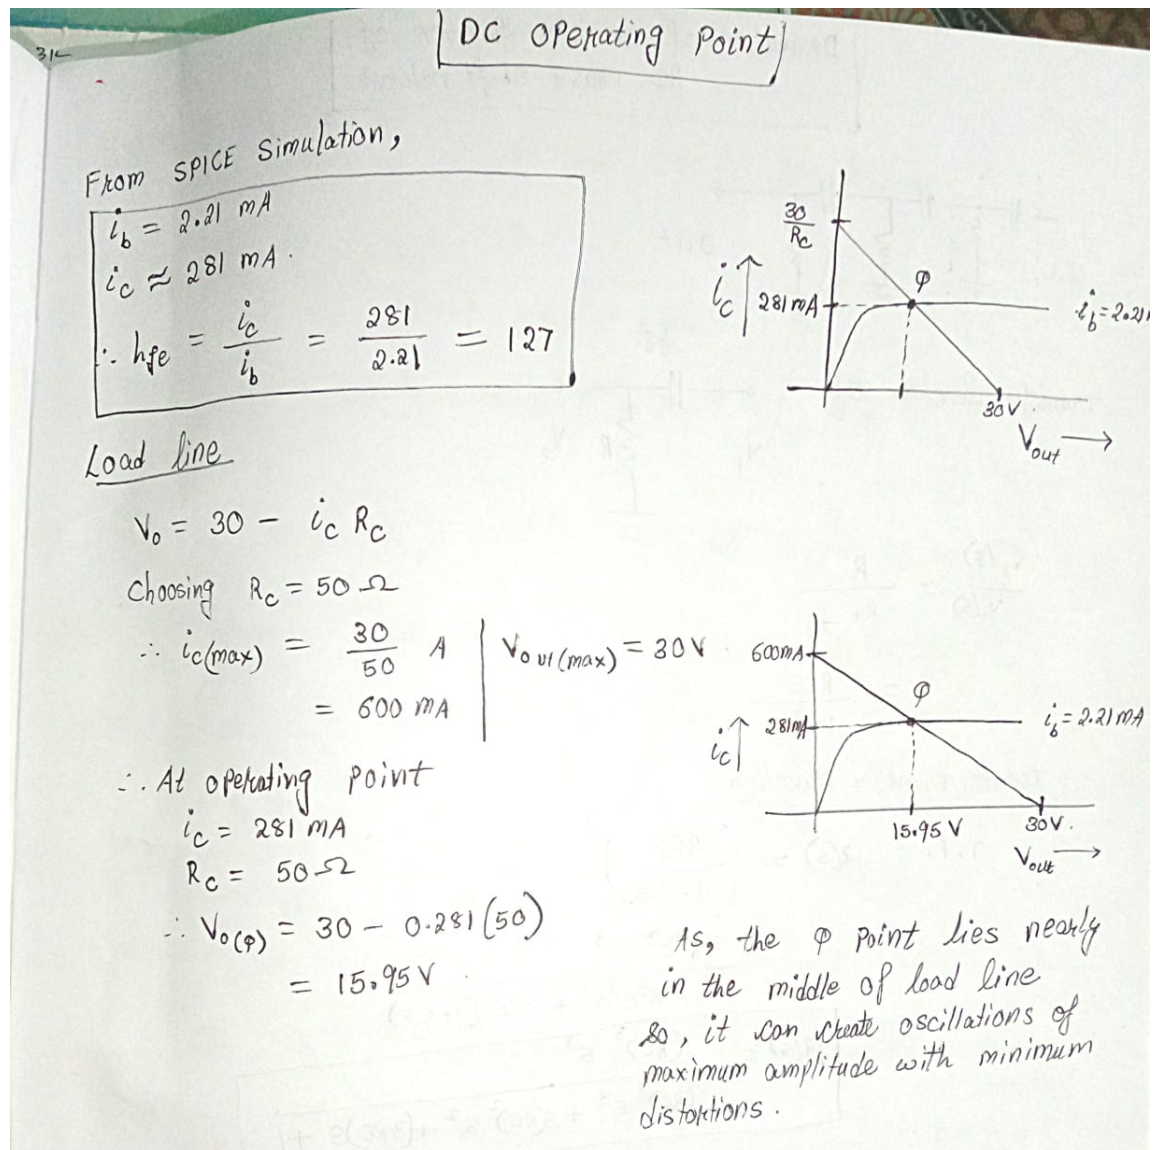 DC Operating Point
From SPICE Simulation,
i_b = 2.21 mA
i_c ≈ 281 mA.
∴ hfe = i_c / i_b = 281 / 2.21 = 127
30 / R_C
i_c ↑ 281 mA
Q
i_b = 2.21
30V.
V_out →
Load line
V_o = 30 - i_c R_C
Choosing R_C = 50 Ω
∴ i_c(max) = 30 / 50 A
= 600 mA
V_out(max) = 30V
600mA
i_c ↑ 281mA
Q
i_b = 2.21 mA
15.95 V
30V.
V_out →
∴ At operating point
i_c = 281 mA
R_C = 50 Ω
∴ V_o(Q) = 30 - 0.281 (50)
= 15.95 V.
As, the Q point lies nearly
in the middle of load line
so, it can create oscillations of
maximum amplitude with minimum
distortions.